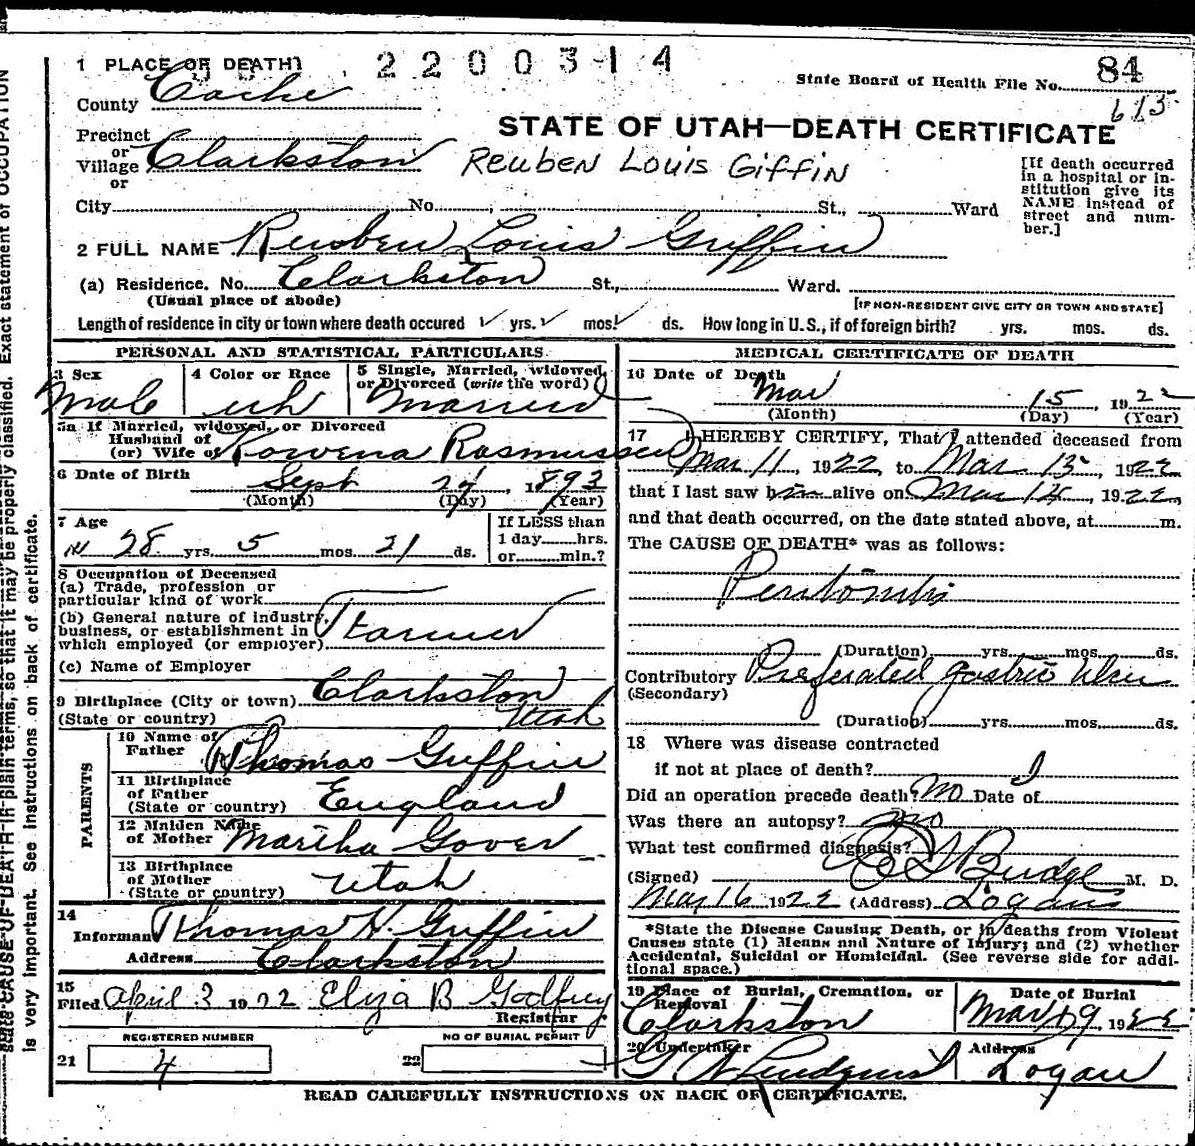 1 PLACE OF DEATH
2200314
State Board of Health File No. 84
County Cache
613
STATE OF UTAH—DEATH CERTIFICATE
Precinct
or
Village Clarkston
or
Reuben Louis Giffin
[If death occurred
in a hospital or in-
stitution give its
NAME instead of
street and num-
ber.]
City No. St., Ward
2 FULL NAME Reuben Louis Griffin
(a) Residence. No. Clarkston St., Ward.
(Usual place of abode)
[IF NON-RESIDENT GIVE CITY OR TOWN AND STATE]
Length of residence in city or town where death occured yrs. mos. ds. How long in U. S., if of foreign birth? yrs. mos. ds.
PERSONAL AND STATISTICAL PARTICULARS.
3 Sex
Male
4 Color or Race
wh
5 Single, Married, widowed,
or Divorced (write the word)
Married
5a If Married, widowed, or Divorced
Husband of
(or) Wife of Rowena Rasmussen
6 Date of Birth Sept 24, 1893
(Month) (Day) (Year)
7 Age
28 yrs. 5 mos. 21 ds.
If LESS than
1 day hrs.
or min.?
8 Occupation of Deceased
(a) Trade, profession or
particular kind of work
(b) General nature of industry,
business, or establishment in
which employed (or employer) Farmer
(c) Name of Employer
9 Birthplace (City or town) Clarkston
(State or country) Utah
PARENTS
10 Name of
Father Thomas Griffin
11 Birthplace
of Father
(State or country) England
12 Maiden Name
of Mother Martha Gover
13 Birthplace
of Mother
(State or country) Utah
14
Informant Thomas H. Griffin
Address Clarkston
15
Filed April 3 1922 Eliza B Godfrey
Registrar
REGISTERED NUMBER
21 4
NO OF BURIAL PERMIT
22
MEDICAL CERTIFICATE OF DEATH
16 Date of Death
Mar 15, 1922
(Month) (Day) (Year)
17 I HEREBY CERTIFY, That I attended deceased from
Mar 11, 1922 to Mar 15, 1922
that I last saw him alive on Mar 14, 1922,
and that death occurred, on the date stated above, at m.
The CAUSE OF DEATH* was as follows:
Peritonitis
(Duration) yrs. mos. ds.
Contributory Perforated gastric Ulcer
(Secondary)
(Duration) yrs. mos. ds.
18 Where was disease contracted
if not at place of death?
Did an operation precede death? no Date of
Was there an autopsy? no
What test confirmed diagnosis?
(Signed) Budge M. D.
Mar 16 1922 (Address) Logan
*State the Disease Causing Death, or in deaths from Violent
Causes state (1) Means and Nature of Injury; and (2) whether
Accidental, Suicidal or Homicidal. (See reverse side for addi-
tional space.)
19 Place of Burial, Cremation, or
Removal
Clarkston
Date of Burial
Mar 19, 1922
20 Undertaker
Address
Logan
READ CAREFULLY INSTRUCTIONS ON BACK OF CERTIFICATE.
state CAUSE OF DEATH in plain terms, so that it may be properly classified. Exact statement of OCCUPATION
is very important. See instructions on back of certificate.